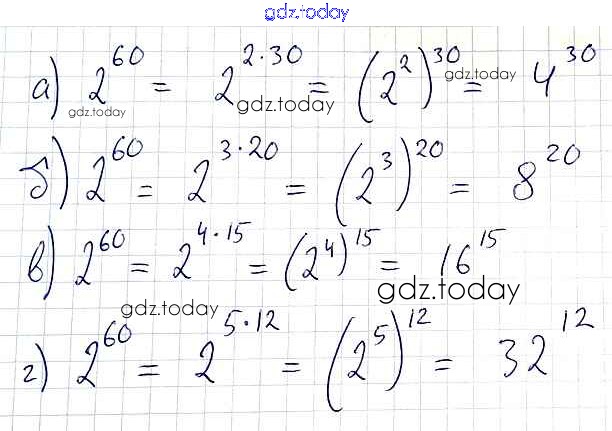 gdz.today
а) 2^60 = 2^2·30 = (2^2)^30 = 4^30
gdz.today
gdz.today
gdz.today
б) 2^60 = 2^3·20 = (2^3)^20 = 8^20
в) 2^60 = 2^4·15 = (2^4)^15 = 16^15
gdz.today
gdz.today
г) 2^60 = 2^5·12 = (2^5)^12 = 32^12